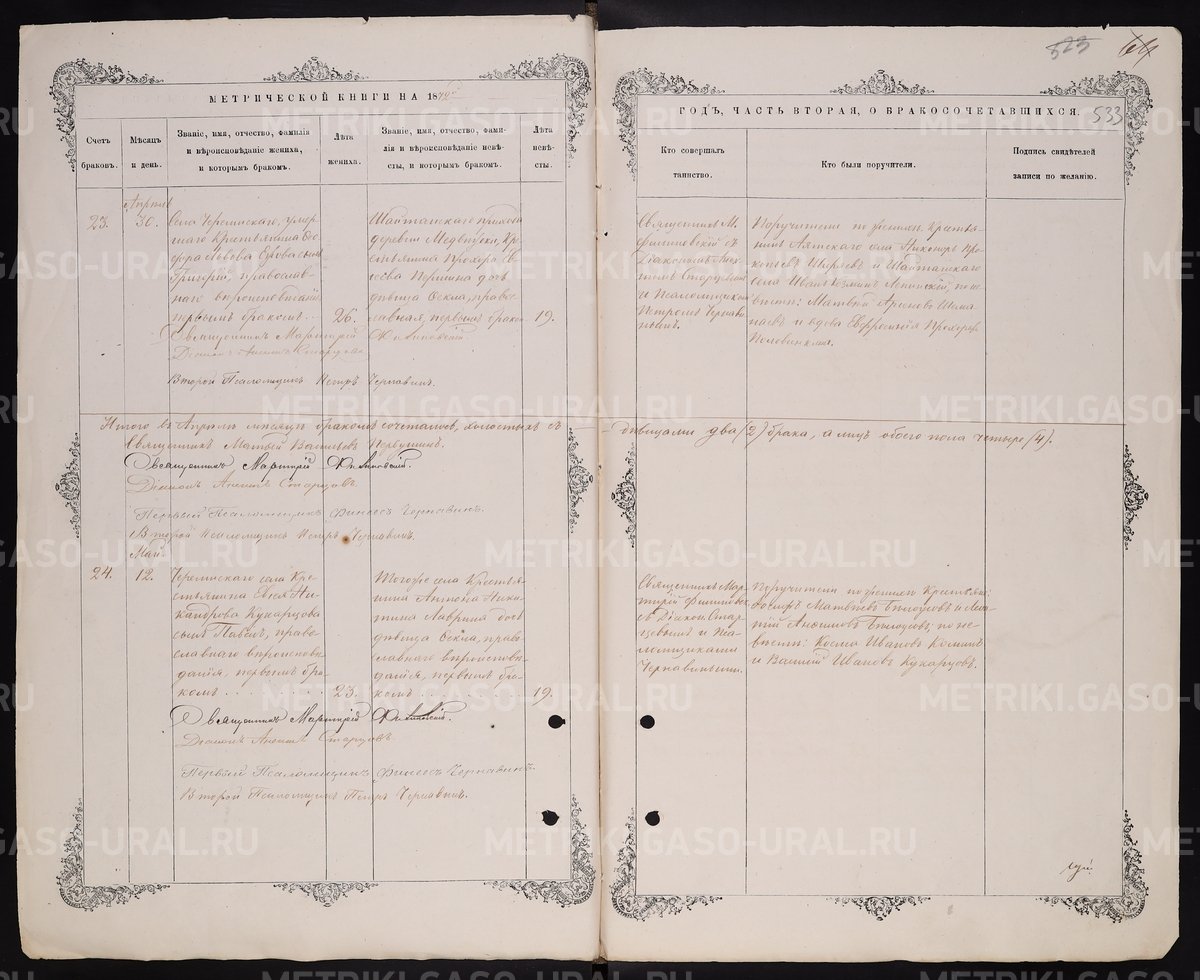 523 64
МЕТРИЧЕСКОЙ КНИГИ НА 18
ГОДЪ, ЧАСТЬ ВТОРАЯ, О БРАКОСОЧЕТАВШИХСЯ. 533
Счетъ браковъ.
Мѣсяцъ и день.
Званіе, имя, отчество, фамилія
и вѣроисповѣданіе жениха,
и которымъ бракомъ.
Лѣта жениха.
Званіе, имя, отчество, фами-
лія и вѣроисповѣданіе невѣ-
сты, и которымъ бракомъ.
Лѣта невѣ-
сты.
Кто совершалъ
таинство.
Кто были поручители.
Подпись свидѣтелей
записи по желанію.
Апрѣль
23.
30.
села Череминскаго, умер-
шаго Крестьянина
сынъ
Григорій, православ-
наго вѣроисповѣданія
первымъ бракомъ
26.
Шайтанскаго прихода
деревни Медвѣдки, Кре-
стьянина Прохора
дочь
дѣвица Ѳекла, право-
славная, первымъ бракомъ
19.
Священникъ М.
Филиповскій съ
Діакономъ
Старцевымъ
и Псаломщикомъ
Петромъ Чернави-
нымъ.
Поручители по женихѣ: Крестья-
нинъ Аятскаго села Никторъ Про-
копьевъ Ширяевъ и Шайтанскаго
села Иванъ Козминъ по не-
вѣстѣ: Матвѣй
и вдова Евфросинія Прохорова
Половинкина.
Священникъ Мартирій Филиповскій.
Діаконъ Старцовъ
Второй Псаломщикъ Петръ Чернавинъ.
Итого въ Апрѣлѣ мѣсяцѣ бракомъ сочетаново, холостыхъ съ
дѣвицами два (2) брака, а лицъ обоего пола четыре (4).
Священникъ Матвѣй Васильевъ Первушинъ.
Священникъ Мартирій Филиповскій.
Діаконъ Старцовъ.
Первый Псаломщикъ Финеесъ Чернавинъ.
Второй Псаломщикъ Петръ Чернавинъ.
Май.
24.
12.
Череминскаго села Кре-
стьянина Евсея Ни-
кандрова Кукарцова
сынъ Павелъ, право-
славнаго вѣроисповѣ-
данія, первымъ бра-
комъ
23.
Тогоже села Крестья-
нина Антона Ники-
тина Лаврина дочь
дѣвица Ѳекла, право-
славнаго вѣроисповѣ-
данія, первымъ бра-
комъ
19.
Священникъ Мар-
тирій Филиповскій
съ Діакон. Стар-
цевымъ и Пса-
ломщиками
Чернавиными.
Поручители по женихѣ: Крестьяне
Іосифъ Матвѣевъ Бѣлоусовъ и
Бѣлоусовъ; по не-
вѣстѣ: Косма Ивановъ
и Василій Ивановъ Кукарцовъ.
Священникъ Мартирій Филиповскій.
Діаконъ Старцовъ.
Первый Псаломщикъ Финеесъ Чернавинъ
Второй Псаломщикъ Петръ Чернавинъ.
METRIKI.GASO-URAL.RU